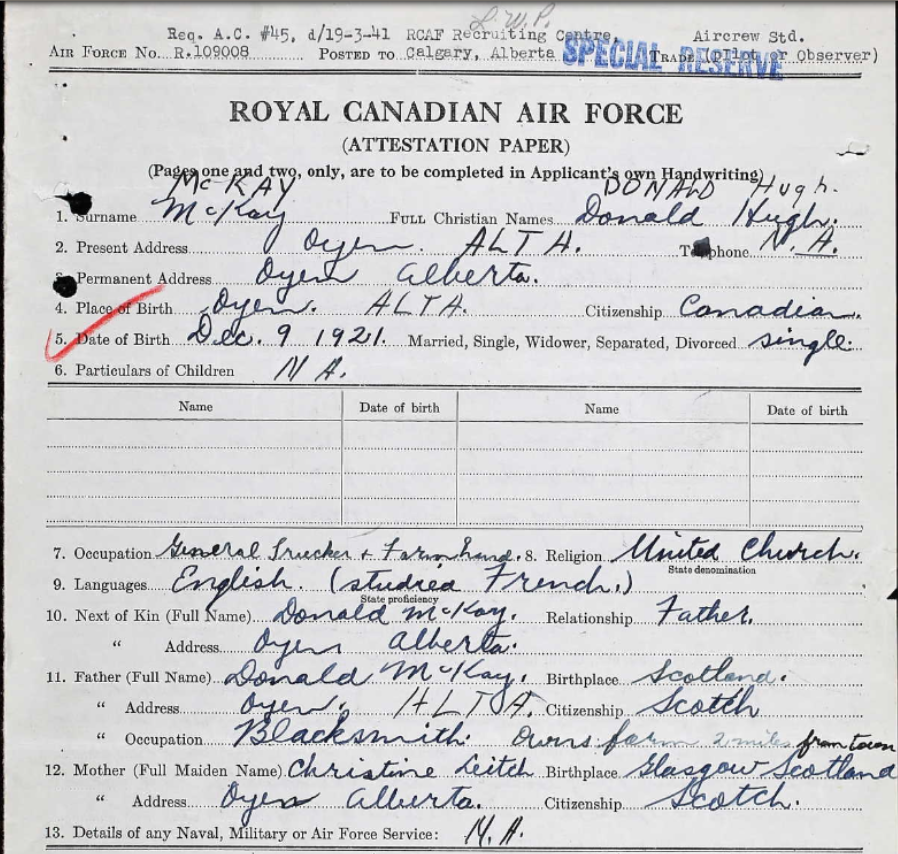 L.W.P.
Req. A.C. #45, d/19-3-41 RCAF Recruiting Centre, Aircrew Std.
AIR FORCE No. R.109008 POSTED TO Calgary, Alberta SPECIAL RESERVE TRADE (Pilot or Observer)
ROYAL CANADIAN AIR FORCE
(ATTESTATION PAPER)
(Pages one and two, only, are to be completed in Applicant's own Handwriting)
McKAY DONALD Hugh.
1. Surname McKay FULL CHRISTIAN NAMES Donald Hugh.
2. Present Address Oyen. ALTA. Telephone N.A.
3. Permanent Address Oyen Alberta.
4. Place of Birth Oyen. ALTA. Citizenship Canadian.
5. Date of Birth Dec. 9 1921. Married, Single, Widower, Separated, Divorced single.
6. Particulars of Children N A.
Name Date of birth Name Date of birth
7. Occupation General Trucker + Farm hand. 8. Religion United Church.
State denomination
9. Languages English (studied French.)
State proficiency
10. Next of Kin (Full Name) Donald McKay. Relationship Father.
" Address Oyen Alberta.
11. Father (Full Name) Donald McKay. Birthplace Scotland.
" Address Oyen. ALTA. Citizenship Scotch
" Occupation Blacksmith. Owns farm 2 miles from town
12. Mother (Full Maiden Name) Christine Leitch Birthplace Glasgow Scotland
" Address Oyen Alberta. Citizenship Scotch.
13. Details of any Naval, Military or Air Force Service: N.A.